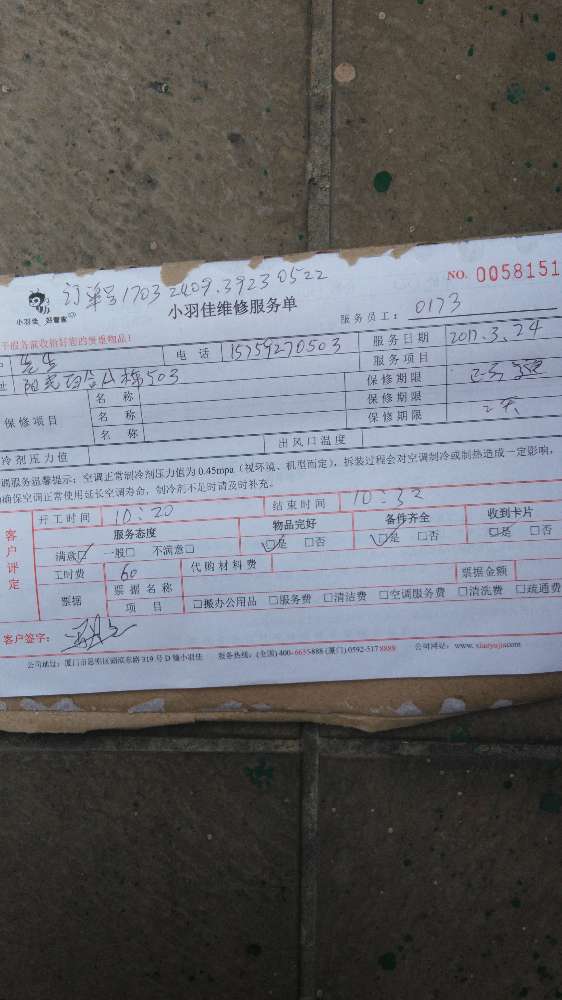 订单号1703 2409.3923 0522
NO. 0058151
小羽佳 好管家
小羽佳维修服务单
服务员工: 0173
先生 电话 15759270503 服务日期 2017.3.24
503 服务项目
名称 保修期限
保修项目 名称 保修期限
名称 保修期限
冷剂压力值 出风口温度
调服务温馨提示:空调正常制冷剂压力值为0.45mpa(视环境、机型而定),拆装过程会对空调制冷或制热造成一定影响,
确保空调正常使用延长空调寿命,制冷剂不足时请及时补充。
开工时间 10:20 结束时间 10:32
客户评定
服务态度 物品完好 备件齐全 收到卡片
满意☑ 一般□ 不满意□ ☑是 □否 ☑是 □否 □是 □否
工时费 60 代购材料费
票据 票据名称 票据金额
项目 □搬办公用品 □服务费 □清洁费 □空调服务费 □清洗费 □疏通费
客户签字:
公司地址:厦门市思明区湖滨东路319号D幢小羽佳 服务热线:(全国)400-6655-888 (厦门)0592-517 8888 公司网站:www.xiaoyujia.com